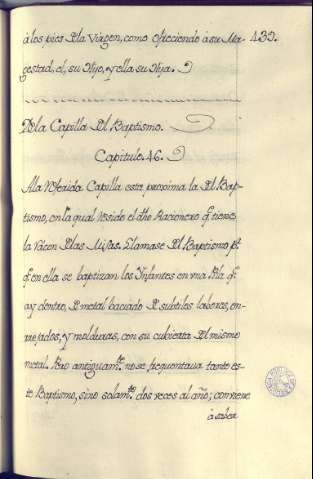 à los pies dela Virgen, como ofreciendo à su Ma- 439.
gestad, el, su Hijo, y ella, su Hija.
Dela Capilla del Baptismo.
Capitulo. 46.
Ala referida Capilla esta proxima la del Bap-
tismo, en la qual reside el dho Racionero q̃ tiene
la de las Missas. Llamase del Baptismo pr.
q̃ en ella se baptizan los Infantes en vna Pila q̃
ay dentro, de metal baciado de subtiles labores, en-
rejados, y molduras, con su cubierta del mismo
metal. Pero antiguamte. no se frequentaua tanto es-
te Baptismo, sino solamte. dos veces al año; conviene
à saber